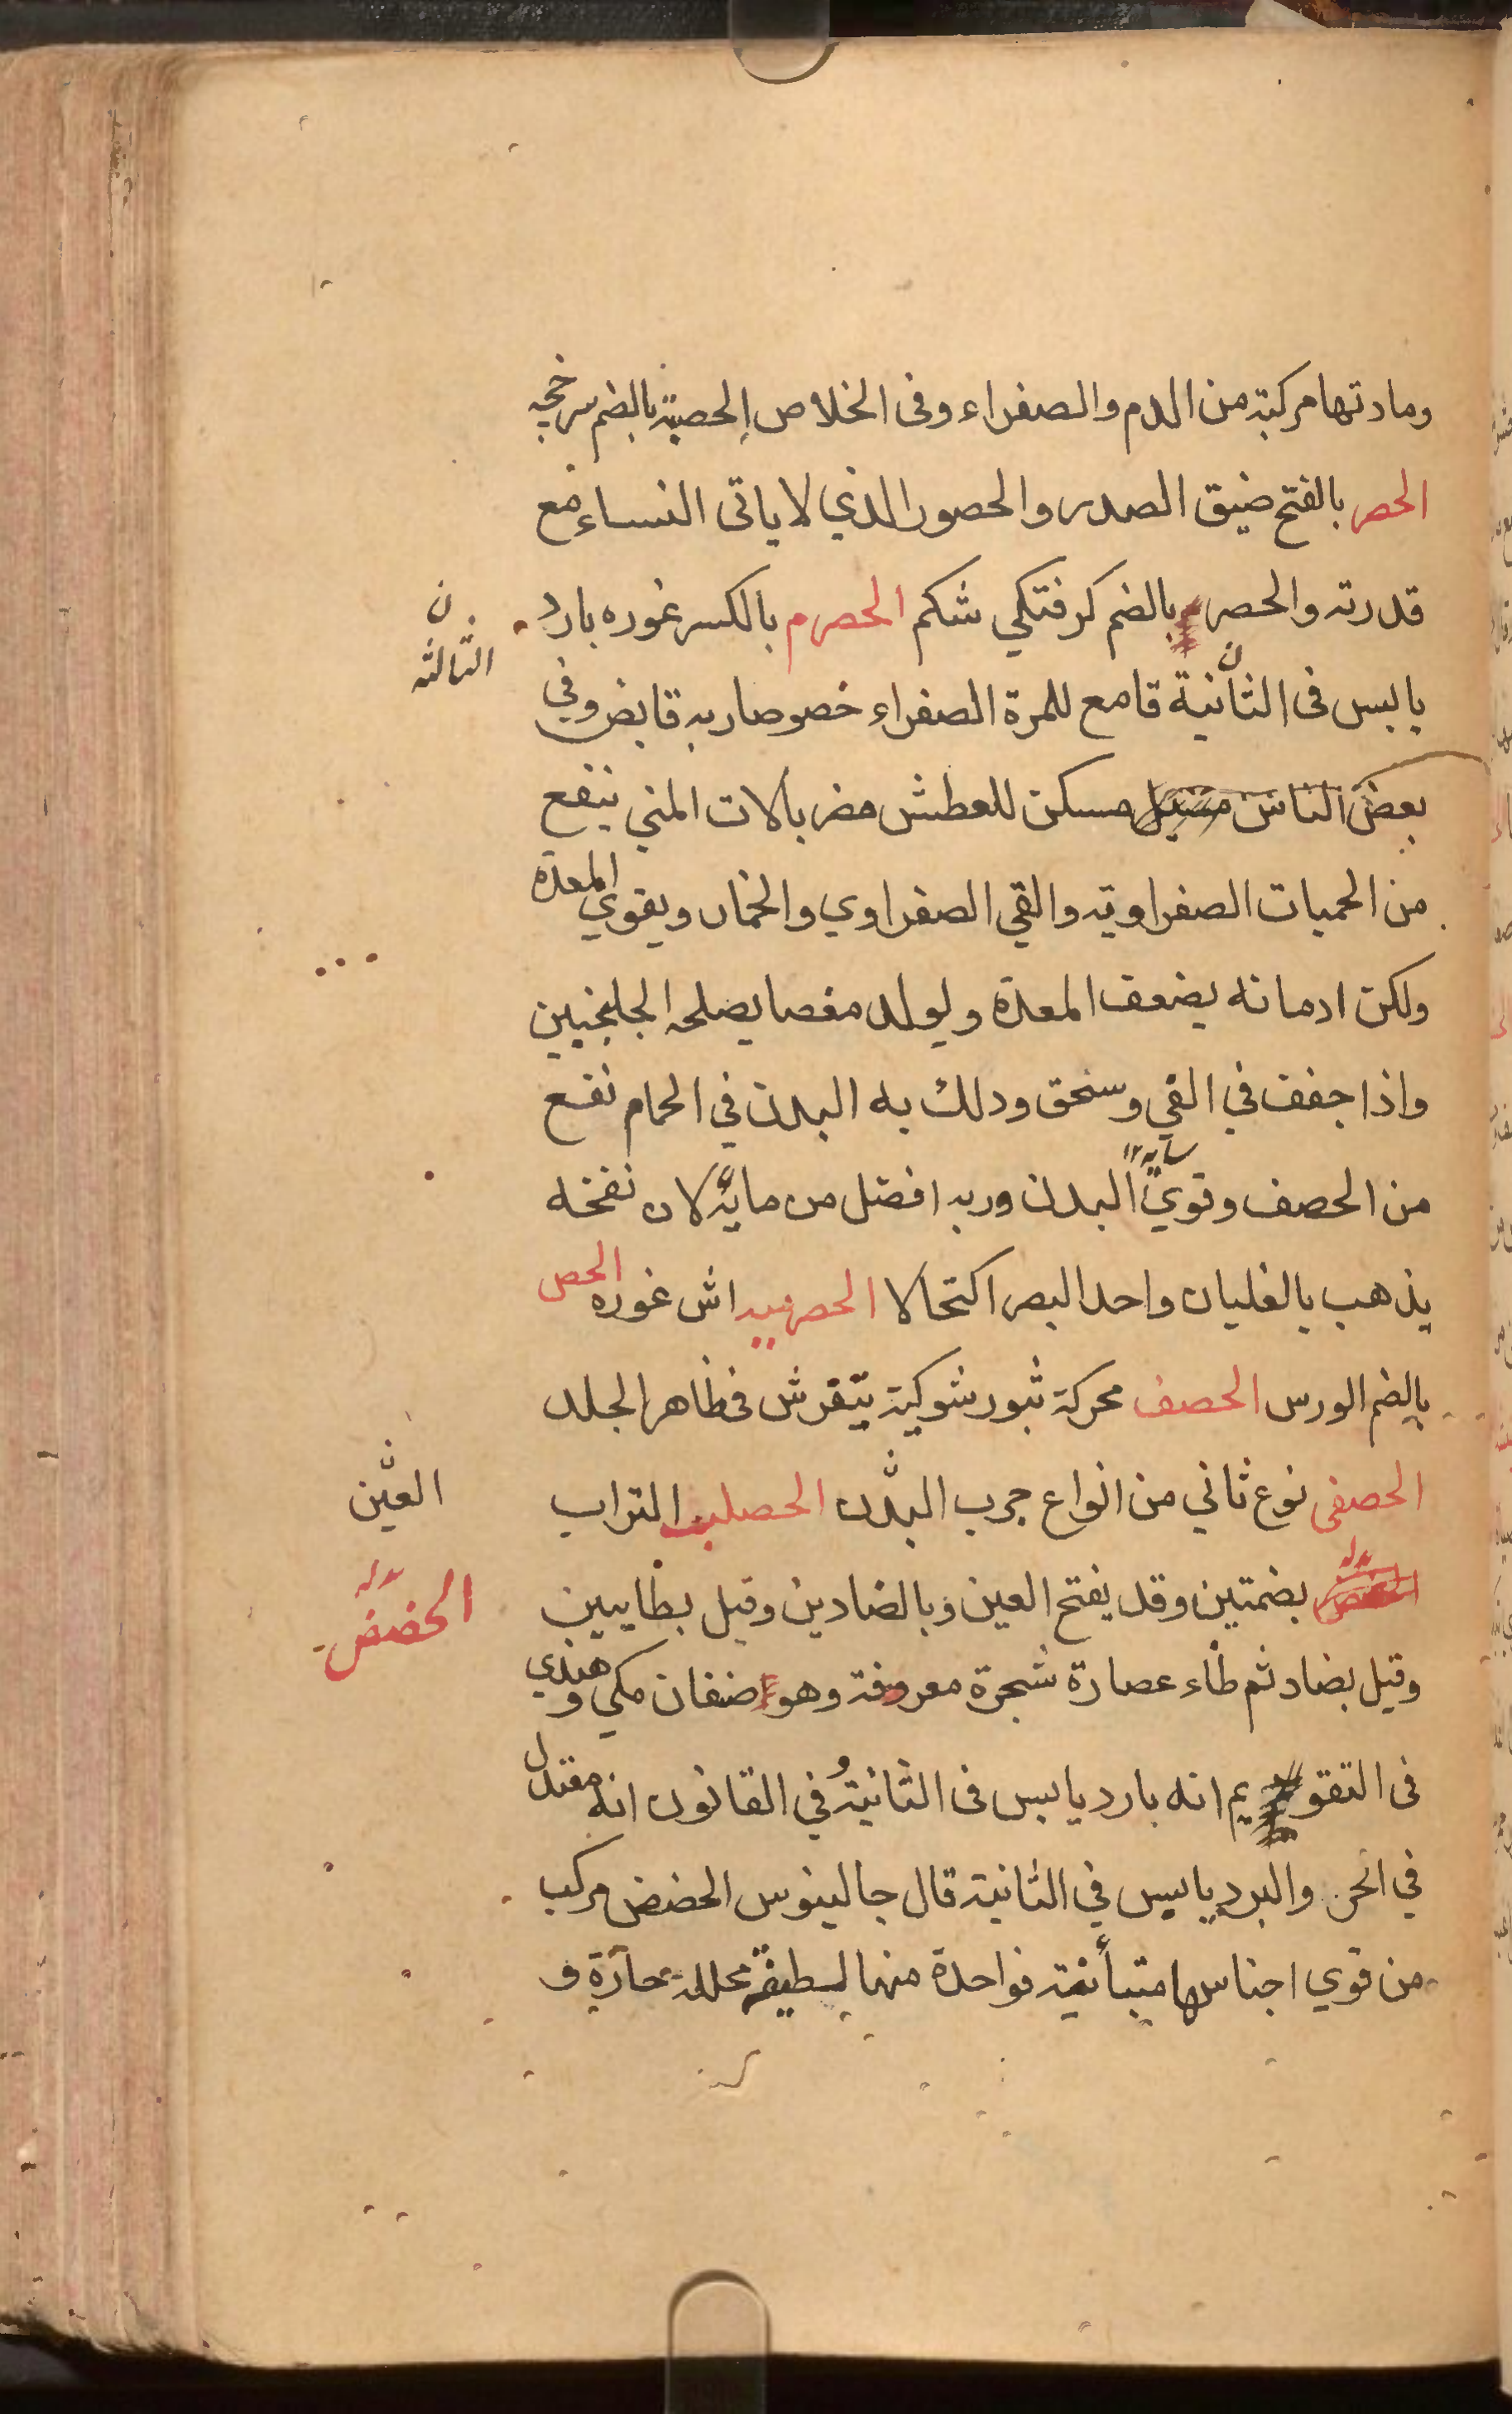 ومادتها مركبة من الدم والصفراء وفى الخلاص الحصبة بالضم سرخجه
الحصر بالفتح ضيق الصدر والحصور الذي لا ياتى النساء مع
قدرته والحصر بالضم كرفتكي شكم الحصرم بالكسر غوره بارد
ن
الثالثه
يابس فى الثانية قامع للمرة الصفراء خصوصا ربه قابض وفي
بعض الناس مسكن للعطش مضر بالات المني ينفع
من الحميات الصفراوية والقي الصفراوي والخمار ويقوي المعدة
ولكن ادمانه يضعف المعدة ويولد مغصا يصلحه الجلنجبين
واذا جفف في القي وسحق ودلك به البدن في الحمام نفع
من الحصف وقوي البدن وربه افضل من مايه لان نفخه
يذهب بالغليان واحد البصر اكتحالا الحصرميه اش غوره الحص
بالضم الورس الحصف محركة بثور شوكية يتقرش فى ظاهر الجلد
الحصفى نوع ثاني من انواع جرب البدن الحصلب التراب
العين
بضمتين وقد يفتح العين وبالضادين وقيل بظايين
الحضض
وقيل بضاد ثم ظاء عصارة شجرة معروفة وهو صنفان مكي وهندي
فى التقويم انه بارد يابس فى الثانية وفي القانون انه معتدل
في الحر والبرد يابس في الثانية قال جالينوس الحضض مركب
من قوي اجناسها متبائنة فواحدة منها لطيفة محللة حارة و